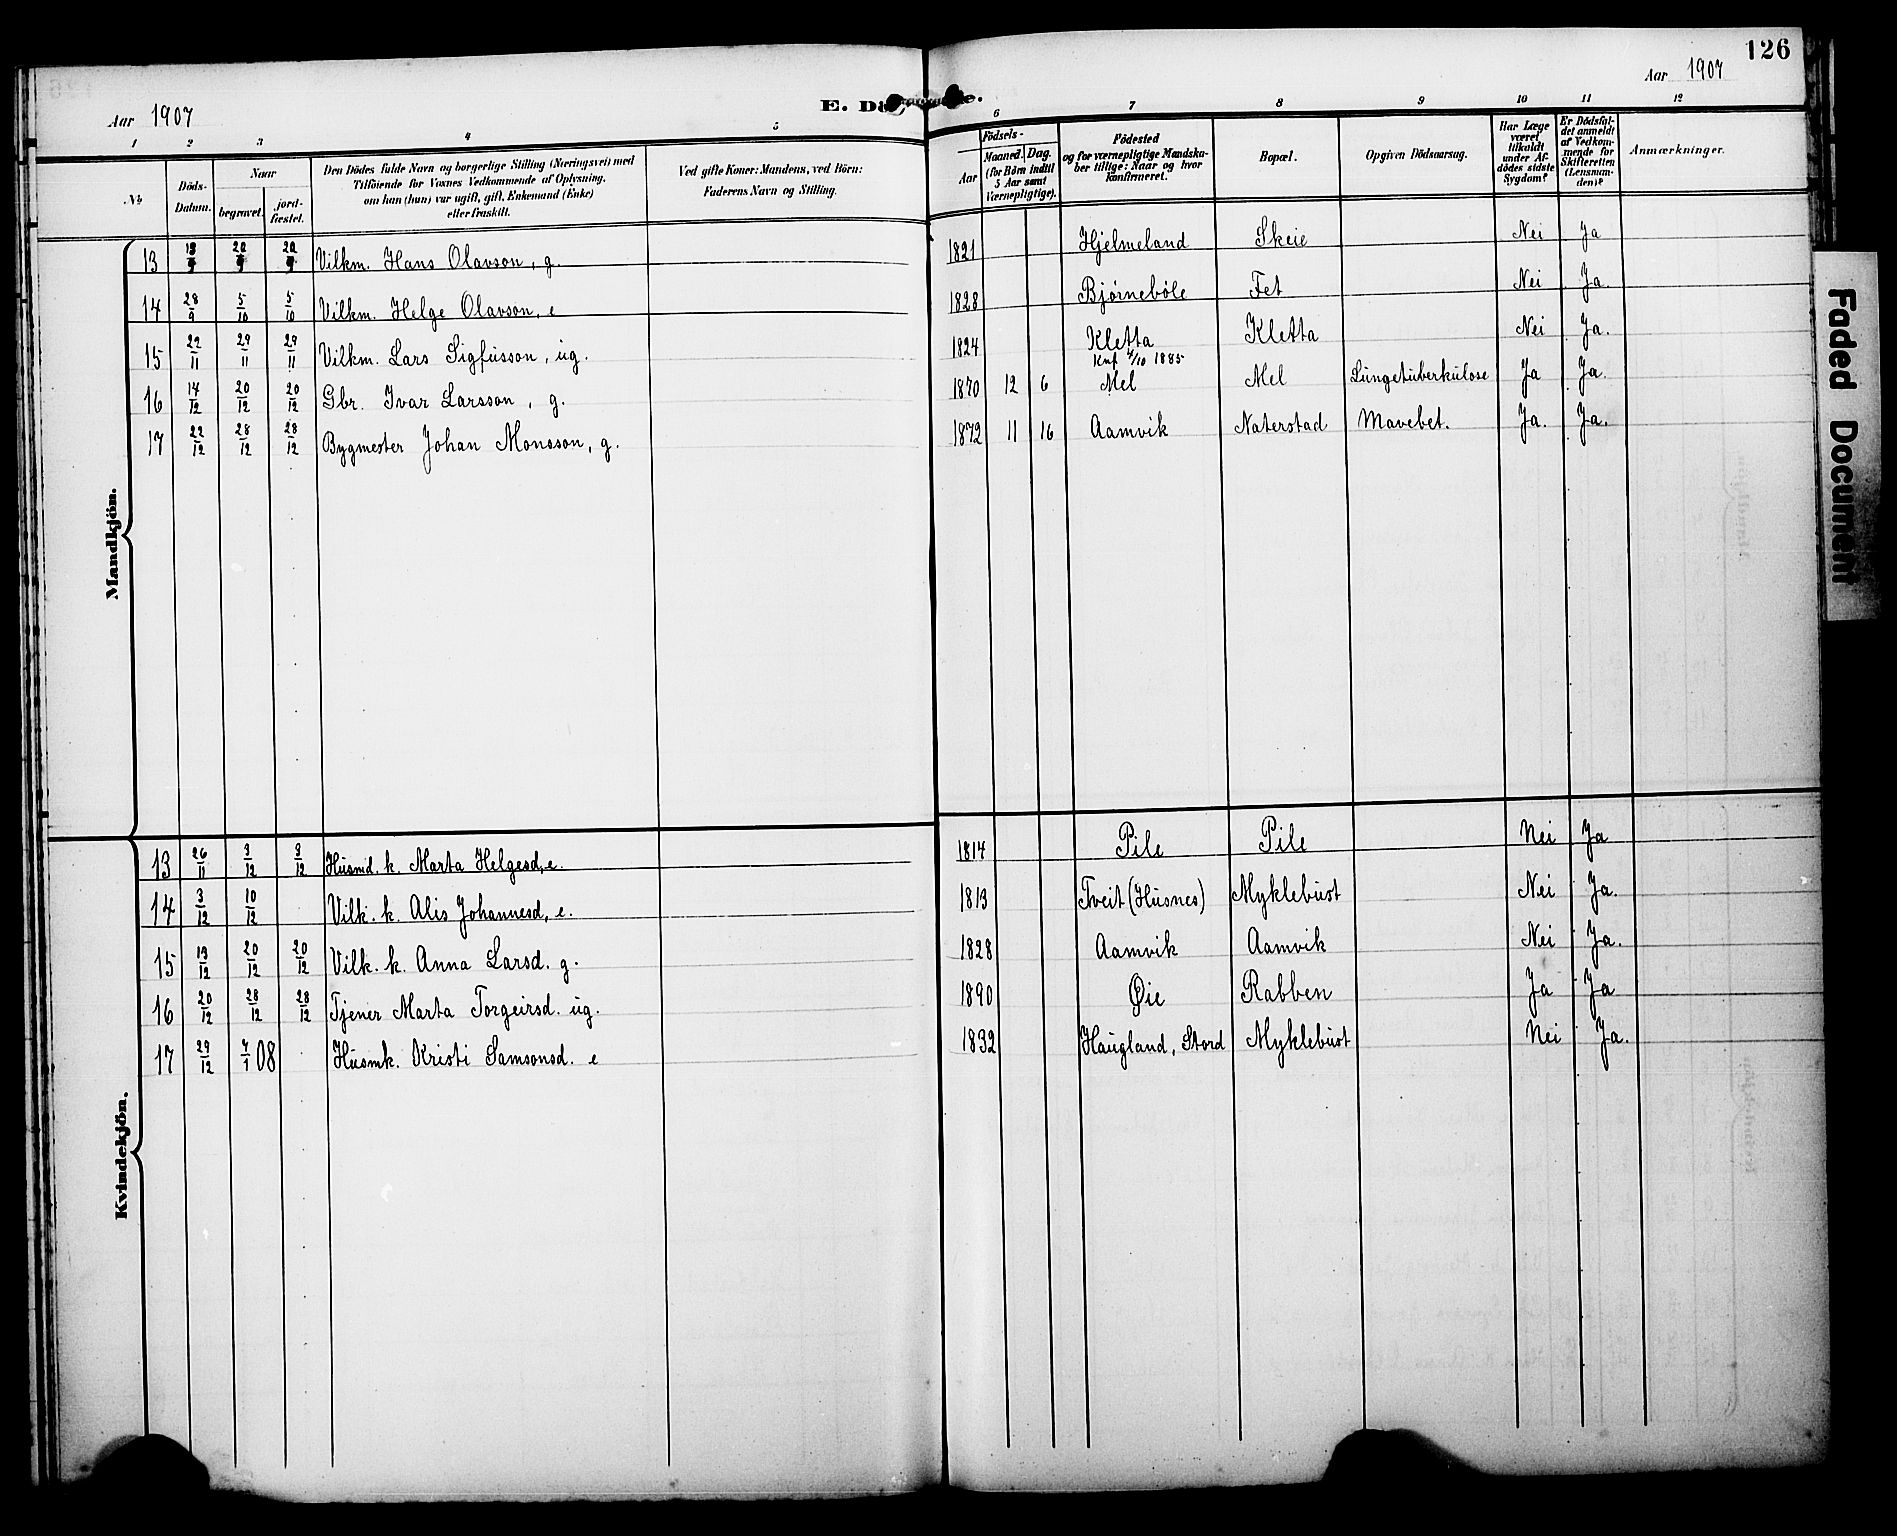 126
Aar 1907
Aar 1907
E. Dö
1 2 3 4 5 6 7 8 9 10 11 12
№
Döds-
Datum.
Naar
begravet.
jord-
fæstet.
Den Dödes fulde Navn og borgerlige Stilling (Næringsvei) med
Tilföiende for Voxnes Vedkommende af Oplysning,
om han (hun) var ugift, gift, Enkemand (Enke)
eller fraskilt.
Ved gifte Koner: Mandens, ved Börn:
Faderens Navn og Stilling.
Födsels-
Aar
Maaned. Dag.
(for Børn indtil
5 Aar samt
Værnepligtige).
Födested
og for værnepligtige Mandska-
ber tillige: Naar og hvor
konfirmeret.
Bopæl.
Opgiven Dödsaarsag.
Har Læge
været
tilkaldt
under Af-
dödes sidste
Sygdom?
Er Dödsfal-
det anmeldt
af Vedkom-
mende for
Skifteretten
(Lensman-
den)?
Anmærkninger.
Mandkjön.
13 Vilkm. Hans Olavson, g. 1821 Hjelmeland Skeie Nei Ja
14 28/9 5/10 5/10 Vilkm. Helge Olavson, e 1828 Bjørnebøle Fet Nei Ja.
15 22/11 29/11 29/11 Vilkm. Lars Sigfusson, ug. 1824 Kletta Kletta Nei Ja.
Knf 4/10 1885
16 14/12 20/12 20/12 Gbr. Ivar Larsson, g. 1870 12 6 Mel Mel Lungetuberkulose Ja Ja.
17 22/12 28/12 28/12 Bygmester Johan Monsson, g. 1872 11 16 Aamvik Naterstad Mavebet. Ja. Ja.
Kvindekjön.
13 26/11 3/12 3/12 Husmd. k. Marta Helgesd, e. 1814 Pile Pile Nei Ja
14 3/12 10/12 Vilk. k. Alis Johannesd, e. 1813 Tveit (Husnes) Myklebust Nei Ja.
15 13/12 20/12 20/12 Vilk. k. Anna Larsd. g. 1828 Aamvik Aamvik Nei Ja.
16 20/12 28/12 28/12 Tjener Marta Torgeirsd. ug. 1890 Øie Rabben Ja Ja
17 29/12 7/1 08 Husmk. Kristi Samsonsd. e 1832 Haugland, Stord Myklebust Nei Ja.
Faded Document